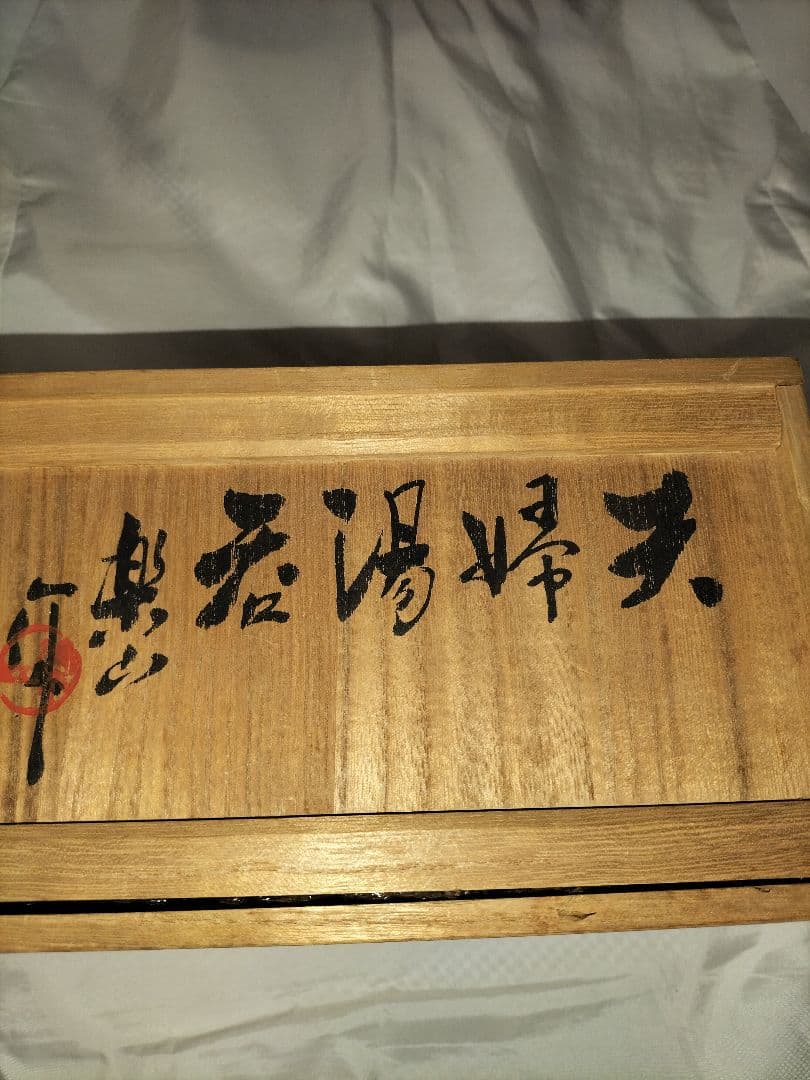 夫婦湯呑
楽山